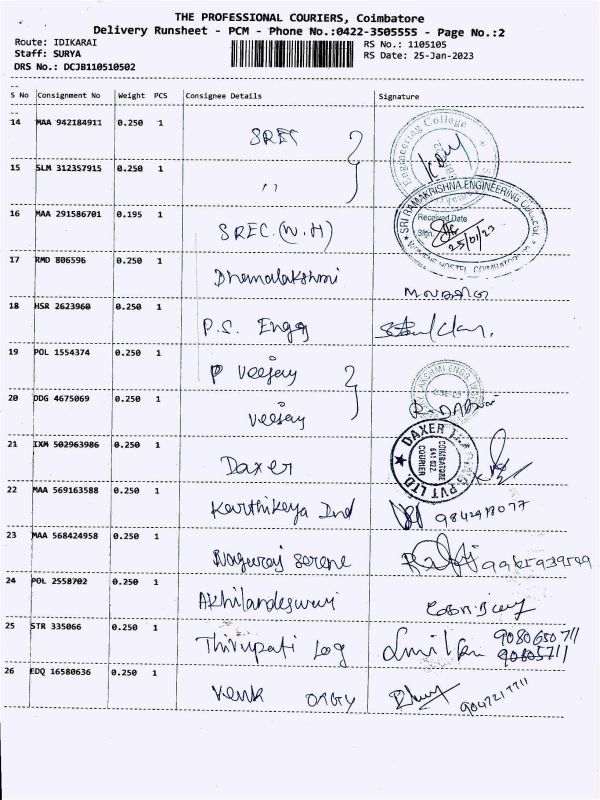 THE PROFESSIONAL COURIERS, Coimbatore
Delivery Runsheet - PCM - Phone No.:0422-3505555 - Page No.:2
Route: IDIKARAI RS No.: 1105105
Staff: SURYA RS Date: 25-Jan-2023
DRS No.: DCJB110510502
S No Consignment No Weight PCS Consignee Details Signature
14 MAA 942184911 0.250 1 SREC
Engineering College
15 SLM 312357915 0.250 1 ,,
16 MAA 291586701 0.195 1 SREC (W.H)
SRI RAMAKRISHNA ENGINEERING COLLEGE
Received Date
Sign.
25/01/23
WOMENS HOSTEL, COIMBATORE
17 RMD 806596 0.250 1 Dhemalakshmi
18 HSR 2623960 0.250 1 P.S. Engg
19 POL 1554374 0.250 1 P Veejay
20 DDG 4675069 0.250 1 Veejay
21 IXM 502963986 0.250 1 Daxer
DAXER PVT LTD.
COIMBATORE
641 022
COURIER
22 MAA 569163588 0.250 1 Karthikeya Ind
23 MAA 568424958 0.250 1 Naguraj Serene
24 POL 2558702 0.250 1 Akhilandeswari
25 STR 335066 0.250 1 Thirupati Log 9080650711
26 EDQ 16580636 0.250 1 Venk